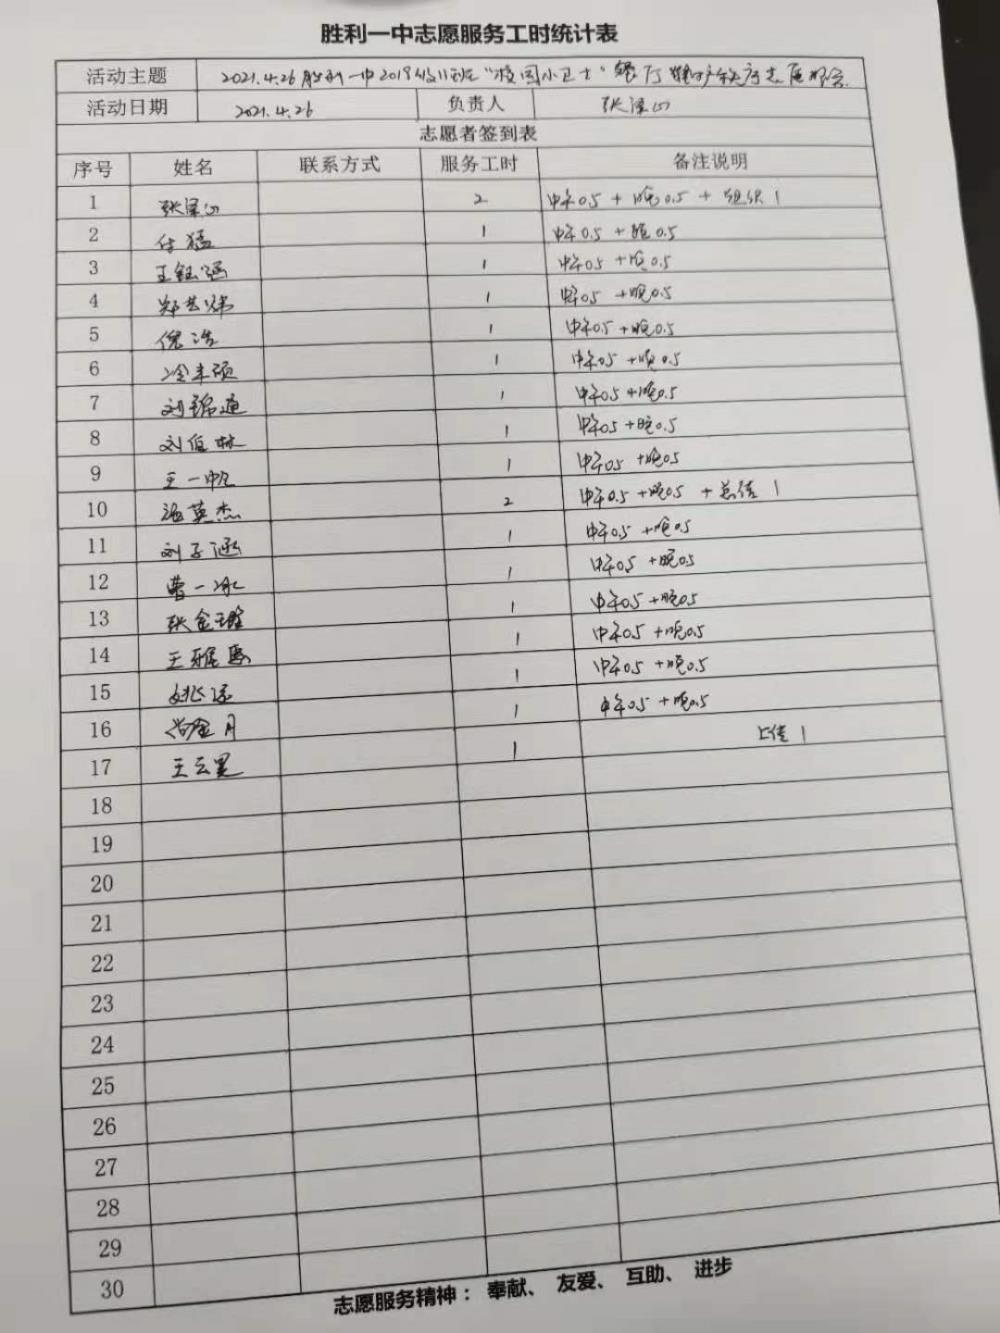 胜利一中志愿服务工时统计表
活动主题 2021.4.26胜利一中2019级11班"校园小卫士"餐厅维护秩序志愿服务
活动日期 2021.4.26 负责人 张泽
志愿者签到表
序号 姓名 联系方式 服务工时 备注说明
1 张泽 2 中午0.5 + 晚0.5 + 组织1
2 付猛 1 中午0.5 + 晚0.5
3 王钰涵 1 中午0.5 + 晚0.5
4 郑艺炜 1 中午0.5 + 晚0.5
5 倪浩 1 中午0.5 + 晚0.5
6 冷丰硕 1 中午0.5 + 晚0.5
7 刘锦道 1 中午0.5 + 晚0.5
8 刘佰林 1 中午0.5 + 晚0.5
9 王一帆 1 中午0.5 + 晚0.5
10 英杰 2 中午0.5 + 晚0.5 + 总结1
11 刘子涵 1 中午0.5 + 晚0.5
12 曹一冰 1 中午0.5 + 晚0.5
13 张金 1 中午0.5 + 晚0.5
14 王雅惠 1 中午0.5 + 晚0.5
15 姚 1 中午0.5 + 晚0.5
16 尚金月 1 中午0.5 + 晚0.5
17 王云昊 1 上传1
18
19
20
21
22
23
24
25
26
27
28
29
30
志愿服务精神： 奉献、 友爱、 互助、 进步